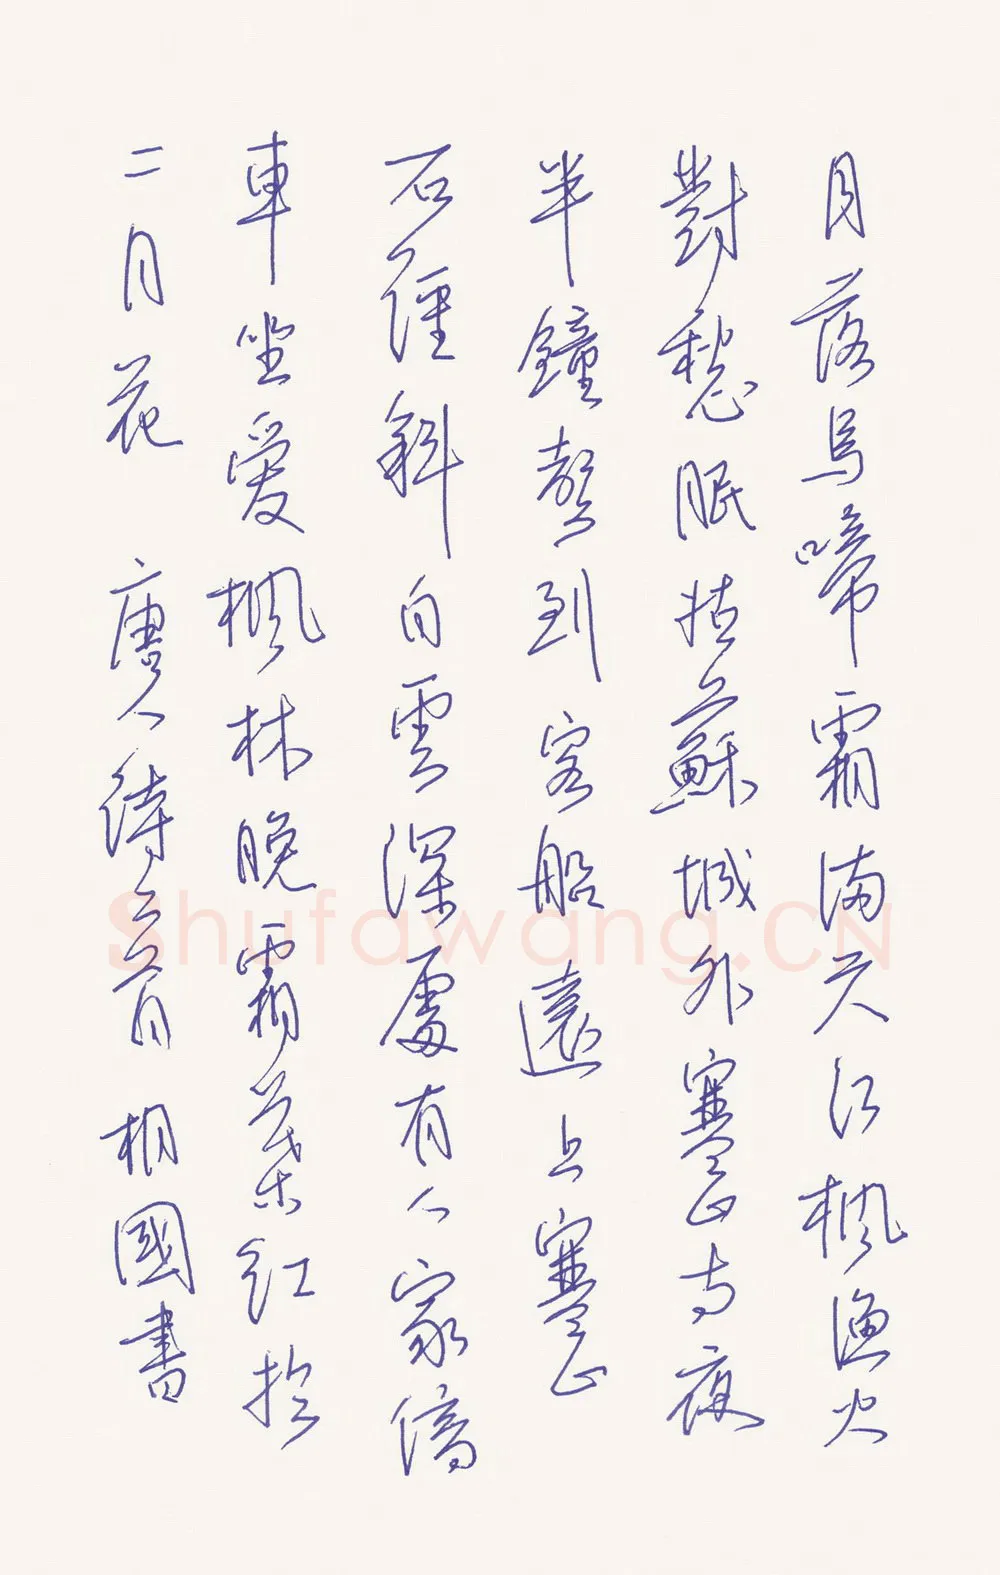 月落烏啼霜滿天江楓漁火
對愁眠姑蘇城外寒山寺夜
半鐘聲到客船遠上寒山
石徑斜白雲深處有人家停
車坐愛楓林晚霜葉紅於
二月花 唐人詩二首 相國書
Shufawang.CN